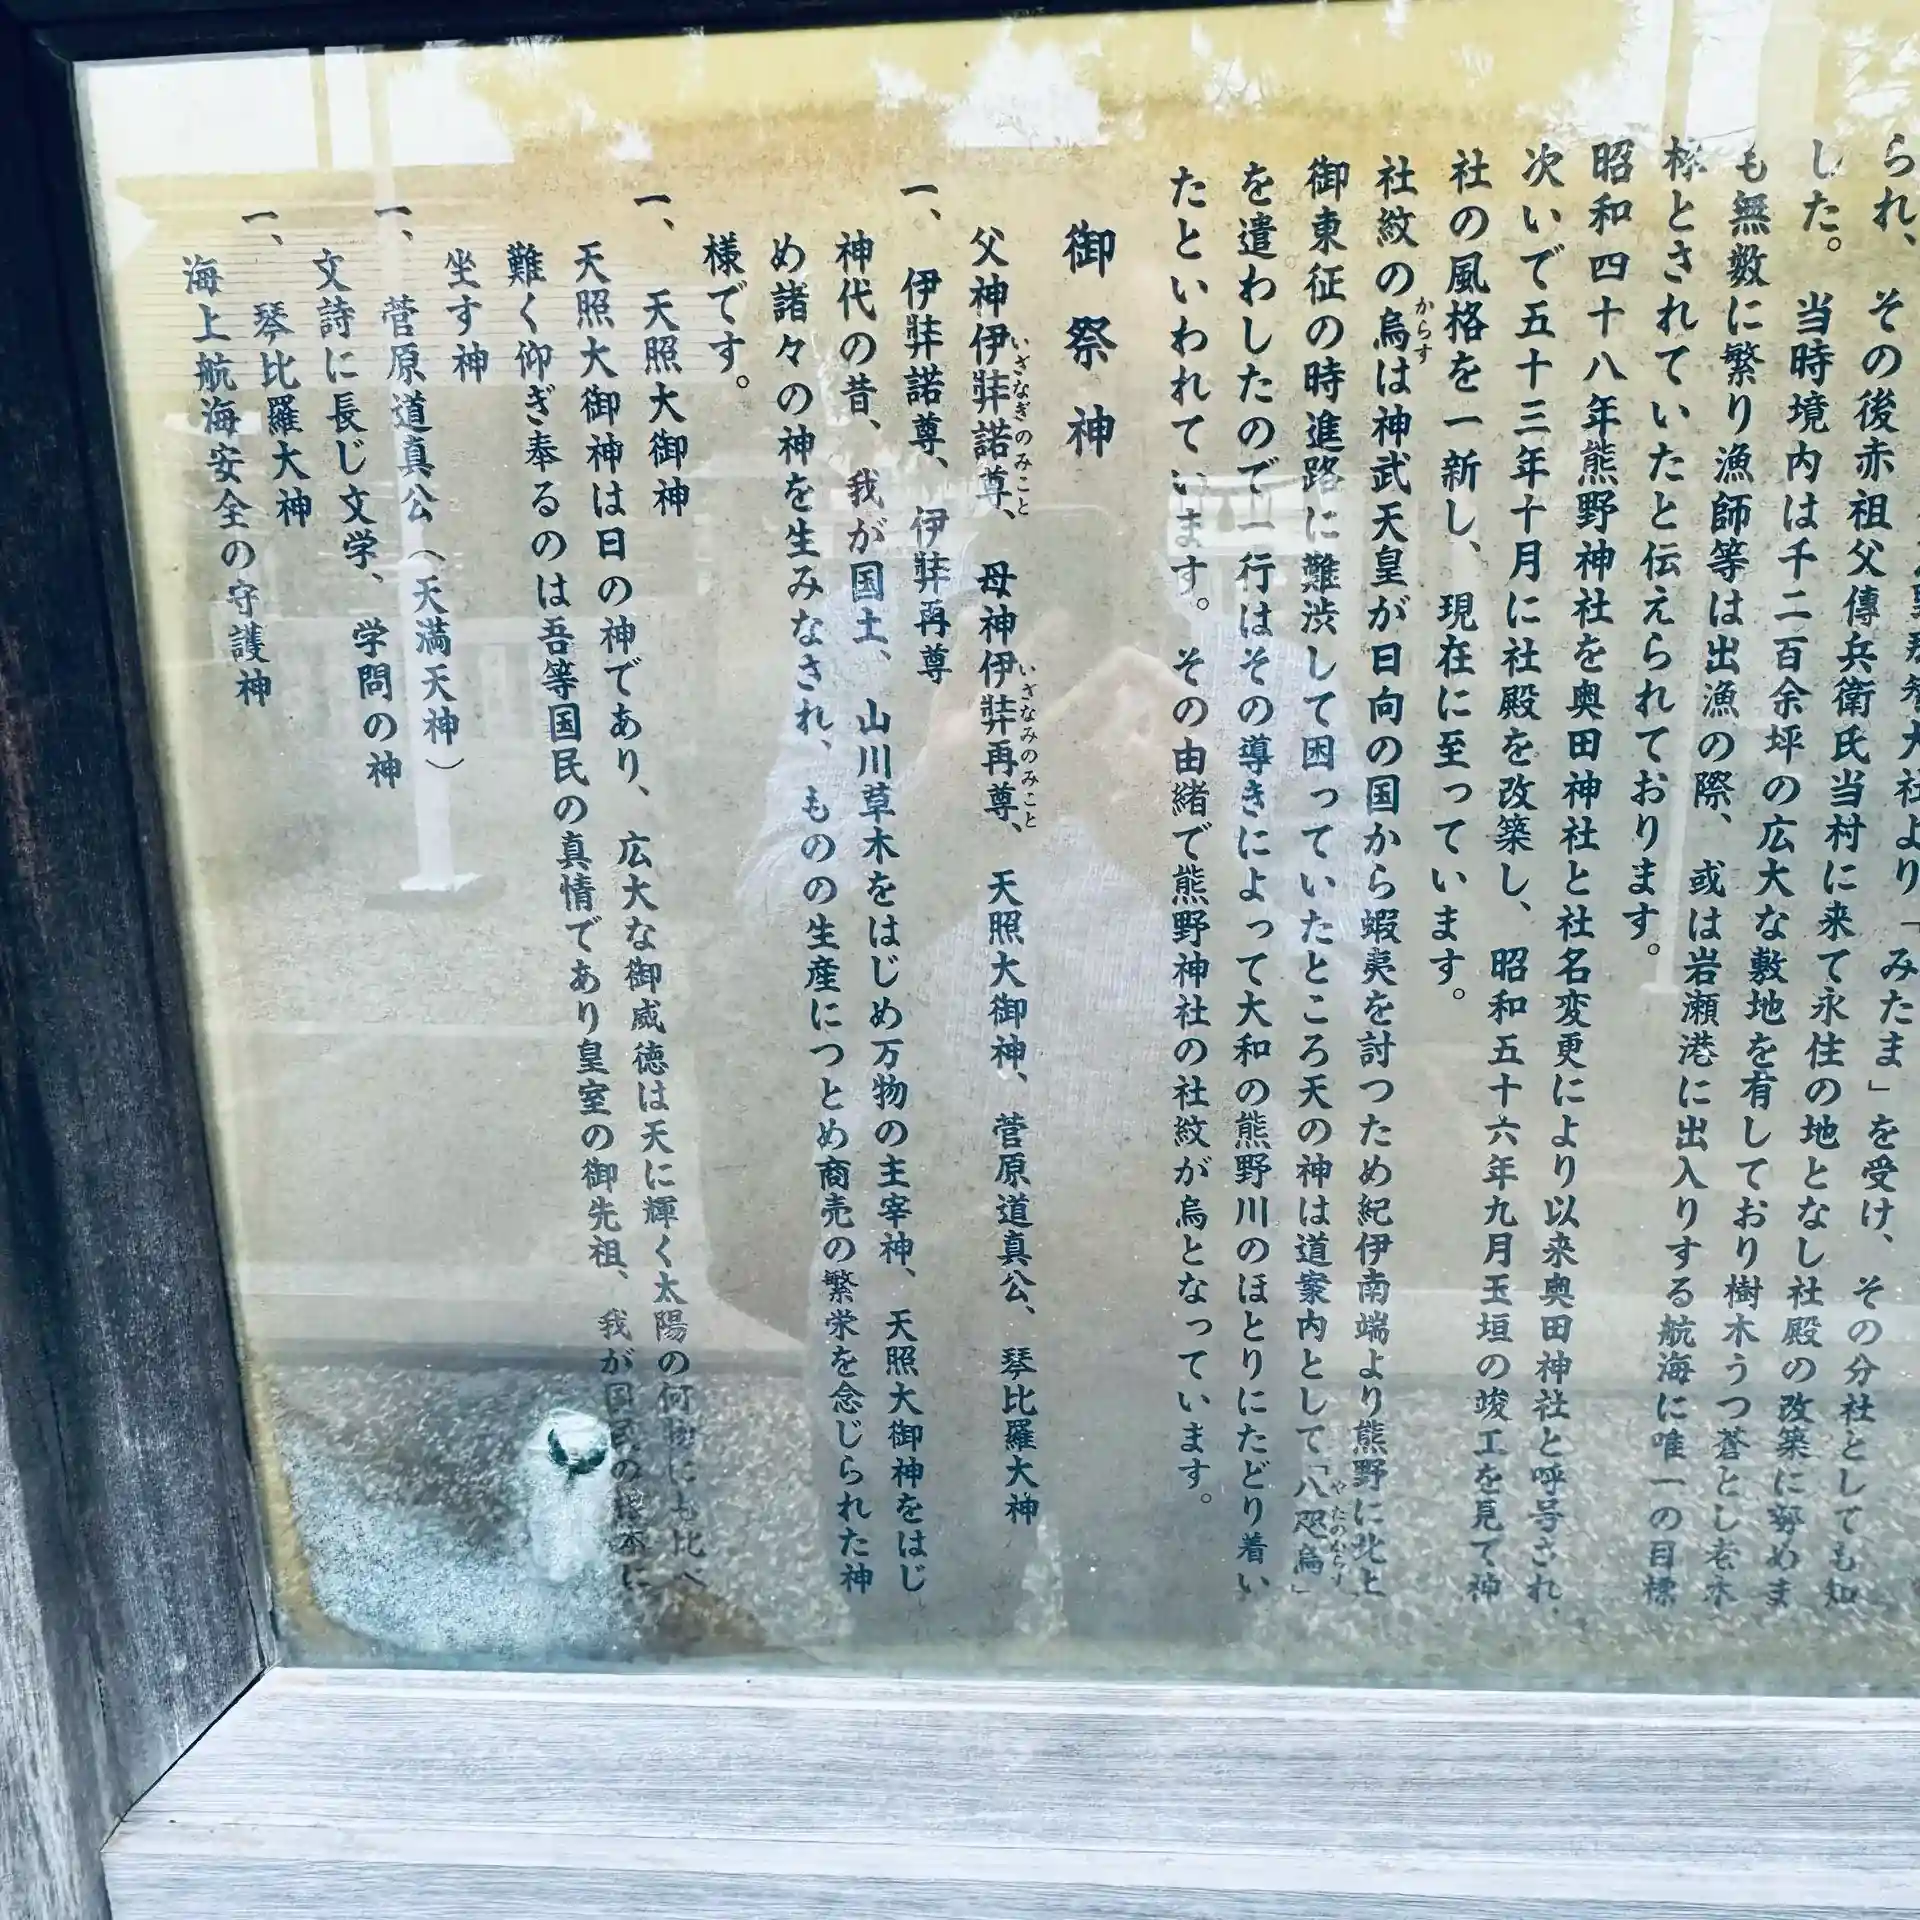 大社より「みたま」を受け、その分社としても知
られ、その後赤祖父傳兵衛氏当村に来て永住の地となし社殿の改築に努めま
した。当時境内は千二百余坪の広大な敷地を有しており樹木うつ蒼とし老木
も無数に繁り漁師等は出漁の際、或は岩瀬港に出入りする航海に唯一の目標
標とされていたと伝えられております。
昭和四十八年熊野神社を奥田神社と社名変更により以来奥田神社と呼号され、
次いで五十三年十月に社殿を改築し、昭和五十六年九月玉垣の竣工を見て神
社の風格を一新し、現在に至っています。
社紋の烏は神武天皇が日向の国から蝦夷を討つため紀伊南端より熊野に北と
からす
御東征の時進路に難渋して困っていたところ天の神は道案内として「八咫烏」
やたのからす
を遣わしたので一行はその導きによって大和の熊野川のほとりにたどり着い
たといわれています。その由緒で熊野神社の社紋が烏となっています。
御祭神
父神伊弉諾尊、母神伊弉再尊、天照大御神、菅原道真公、琴比羅大神
いざなぎのみこと いざなみのみこと
一、伊弉諾尊、伊弉再尊
神代の昔、我が国土、山川草木をはじめ万物の主宰神、天照大御神をはじ
め諸々の神を生みなされ、ものの生産につとめ商売の繁栄を念じられた神
様です。
一、天照大御神
天照大御神は日の神であり、広大な御威徳は天に輝く太陽の何物にも比べ
難く仰ぎ奉るのは吾等国民の真情であり皇室の御先祖、我が国民の根本に
坐す神
一、菅原道真公（天満天神）
文詩に長じ文学、学問の神
一、琴比羅大神
海上航海安全の守護神